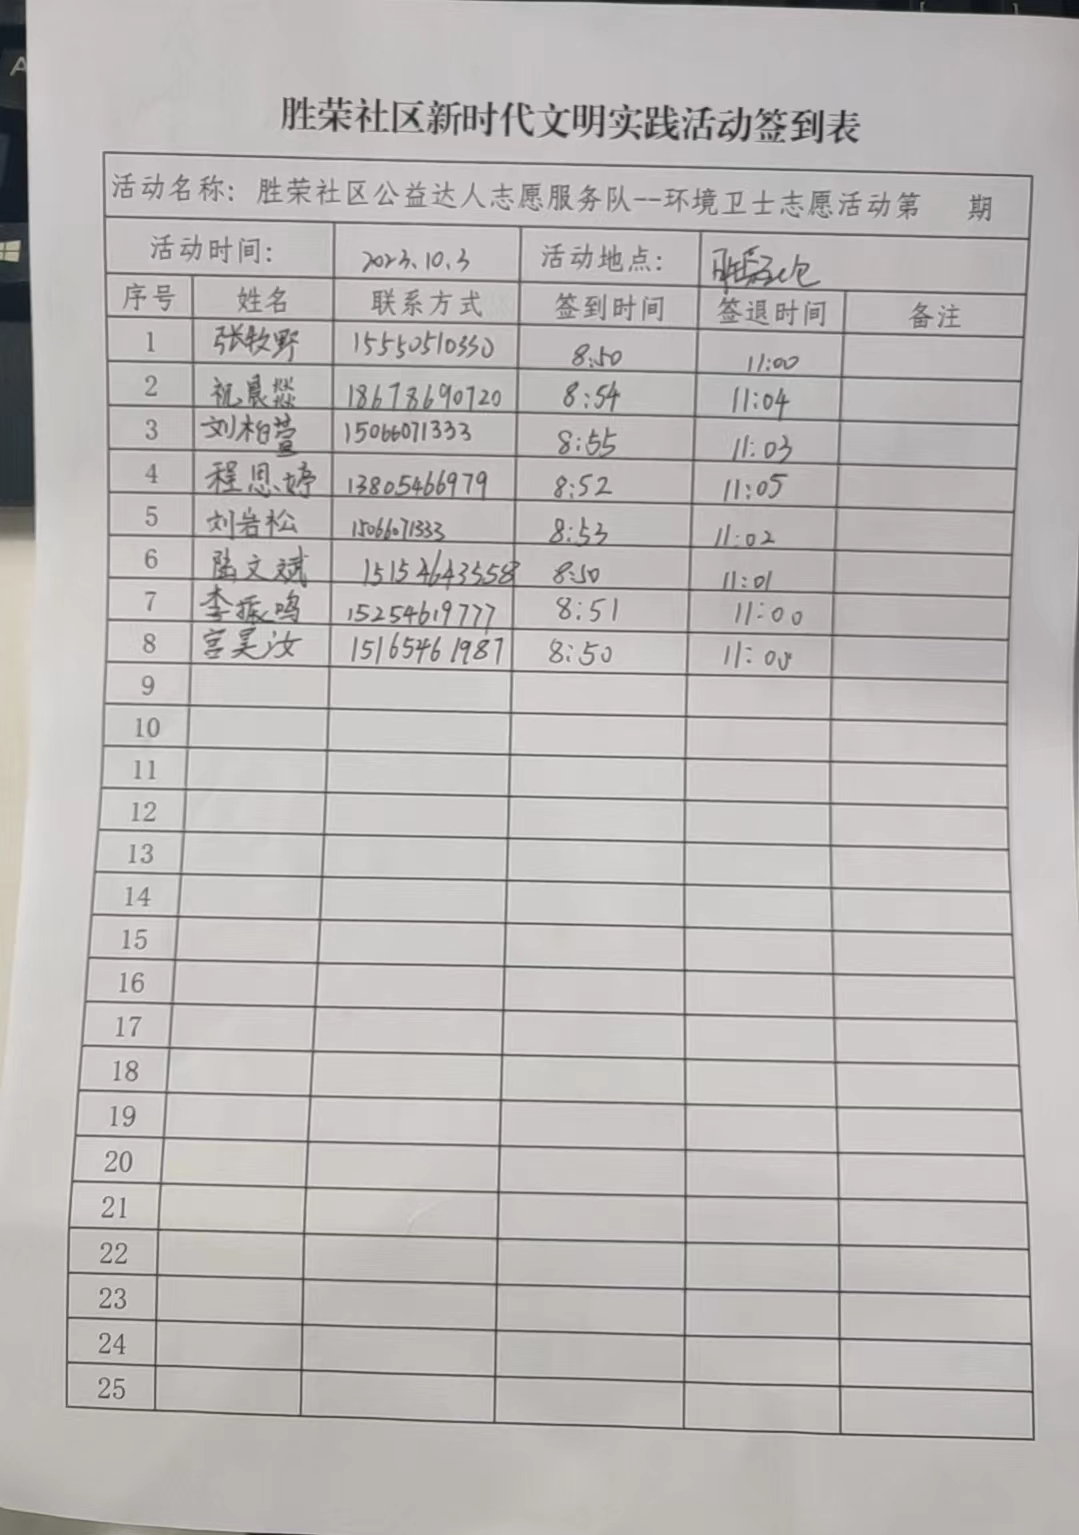 胜荣社区新时代文明实践活动签到表
活动名称：胜荣社区公益达人志愿服务队--环境卫士志愿活动第 期
活动时间： 2023.10.3 活动地点： 胜荣社区
序号 姓名 联系方式 签到时间 签退时间 备注
1 张牧野 15550510330 8:50 11:00
2 祝晨燚 18678690720 8:54 11:04
3 刘柏萱 15066071333 8:55 11:03
4 程思婷 13805466979 8:52 11:05
5 刘岩松 15066071333 8:53 11:02
6 陆文斌 15154643558 8:50 11:01
7 李振鸣 15254619777 8:51 11:00
8 宫昊汝 15165461987 8:50 11:00
9
10
11
12
13
14
15
16
17
18
19
20
21
22
23
24
25